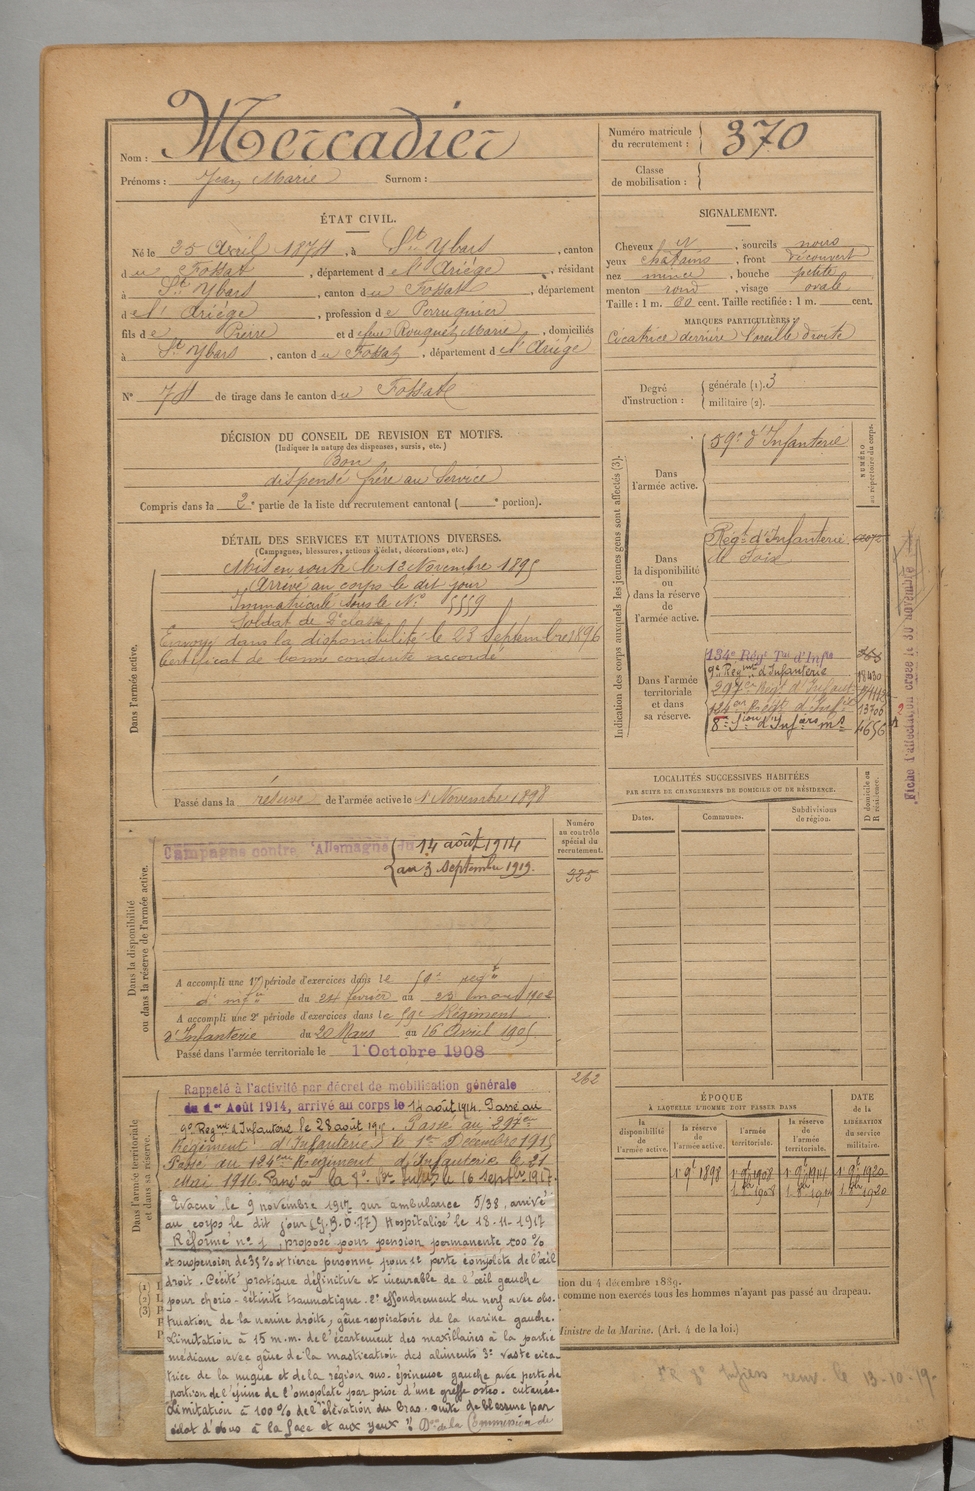 Nom : Mercadier
Prénoms : Jean Marie Surnom :
Numéro matricule du recrutement : 370
Classe de mobilisation :
ÉTAT CIVIL.
Né le 25 Avril 1874, à St Ybars, canton
du Fossat, département de l'Ariège, résidant
à St Ybars, canton du Fossat, département
de l'Ariège, profession de Perruquier
fils de Pierre et de feue Rouquet, Marie, domiciliés
à St Ybars, canton du Fossat, département de l'Ariège
N° 74 de tirage dans le canton du Fossat
SIGNALEMENT.
Cheveux , sourcils noirs
yeux chatains, front découvert
nez mince, bouche petite
menton rond, visage ovale
Taille : 1 m. 60 cent. Taille rectifiée : 1 m. cent.
MARQUES PARTICULIÈRES :
Cicatrice derrière l'oreille droite
Degré d'instruction : générale (1). 3
militaire (2).
DÉCISION DU CONSEIL DE REVISION ET MOTIFS.
(Indiquer la nature des dispenses, sursis, etc.)
Bon
dispensé frère au Service
Compris dans la 2e partie de la liste du recrutement cantonal ( e portion).
DÉTAIL DES SERVICES ET MUTATIONS DIVERSES.
(Campagnes, blessures, actions d'éclat, décorations, etc.)
Dans l'armée active.
Mis en route le 12 Novembre 1895
Arrivé au corps le dit jour
Immatriculé sous le N° 5559
Soldat de 2e classe
Envoyé dans la disponibilité le 23 Septembre 1896
Certificat de bonne conduite accordé
Passé dans la réserve de l'armée active le 1 Novembre 1898
Indication des corps auxquels les jeunes gens sont affectés (3).
NUMÉRO au répertoire du corps.
Dans l'armée active.
59e d'Infanterie
Dans la disponibilité ou dans la réserve de l'armée active.
Regt d'Infanterie
de Foix
Dans l'armée territoriale et dans sa réserve.
134e Régt Tal d'Infie
9e Regmt d'Infanterie 18430
297e Régt d'Infant
124e Régt d'Infie 13706
8e Son d'Infers ms 4656
Fiche d'affectation
LOCALITÉS SUCCESSIVES HABITÉES
PAR SUITE DE CHANGEMENTS DE DOMICILE OU DE RÉSIDENCE.
Dates. Communes. Subdivisions de région. D domicile ou R résidence.
Numéro au contrôle spécial du recrutement.
325
Dans la disponibilité ou dans la réserve de l'armée active.
Campagne contre l'Allemagne du 14 août 1914
au 3 septembre 1919.
A accompli une 1re période d'exercices dans le 59e regt
d'infie du 24 février au 23 mars 1902
A accompli une 2e période d'exercices dans le 59e Régiment
d'Infanterie du 20 Mars au 16 Avril 1905
Passé dans l'armée territoriale le 1 Octobre 1908
262
Dans l'armée territoriale et dans sa réserve.
Rappelé à l'activité par décret de mobilisation générale
du 1er Août 1914, arrivé au corps le 14 août 1914. Passé au
9e Regmt d'Infanterie le 28 août 1915. Passé au 297e
Régiment d'Infanterie le 1er Décembre 1915
Passé au 124eme Régiment d'Infanterie le 21
Mai 1916. Passé à la 8e Son Infers le 16 septbre 1917.
Evacué le 9 novembre 1917 sur ambulance 5/38, arrivé
au corps le dit jour (G.B.D. 77) Hospitalisé le 18-11-1917
Réformé n° 1, proposé pour pension permanente 100 %
et suspension de 35% et tierce personne pour 1° perte complète de l'œil
droit. Cécité pratique définitive et incurable de l'œil gauche
pour chorio-rétinite traumatique. 2° effondrement du nerf avec obs-
truation de la narine droite, gêne respiratoire de la narine gauche.
Limitation à 15 m.m. de l'écartement des maxillaires à la partie
médiane avec gêne de la mastication des aliments 3° vaste cica-
trice de la nuque et de la région sus-épineuse gauche avec perte de
portion de l'épine de l'omoplate par prise d'une greffe ostéo-cutanée.
Limitation à 100 % de l'élévation du bras. suite de blessure par
éclat d'obus à la face et aux yeux. Don de la Commission de
ÉPOQUE
À LAQUELLE L'HOMME DOIT PASSER DANS
la disponibilité de l'armée active. la réserve de l'armée active. l'armée territoriale. la réserve de l'armée territoriale.
DATE de la LIBÉRATION du service militaire.
1 9e 1898 1 9e 1908 1 9e 1914 1 9e 1920
1 8bre 1908 1 8bre 1914 1 8bre 1920
tion du 4 décembre 1889.
comme non exercés tous les hommes n'ayant pas passé au drapeau.
Ministre de la Marine. (Art. 4 de la loi.)
renv. le 13-10-19